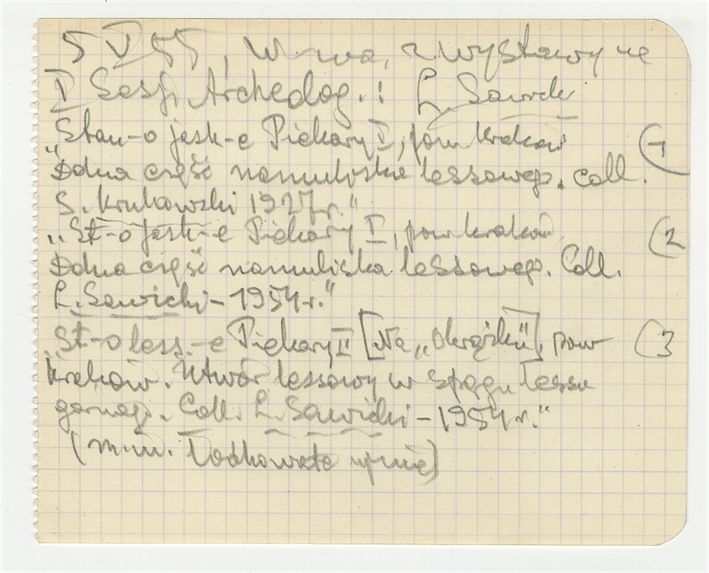 5 V 55, W-wa, z wystawy na
I Sesji Archeolog.: L. Sawicki
"Stan-o jask-e Piekary I, pow. Kraków (1
Dolna część namuliska lessowego. Coll.
S. Krukowski 1927 r."
"St-o jask-e Piekary I, pow. Kraków (2
Dolna część namuliska lessowego. Coll.
L. Sawicki - 1954 r."
St-o less.-e Piekary II [Na "Okrążku"], pow (3
Kraków. Utwór lessowy w spągu lessu
górnego. Coll. L. Sawicki - 1954 r."
(m.in.